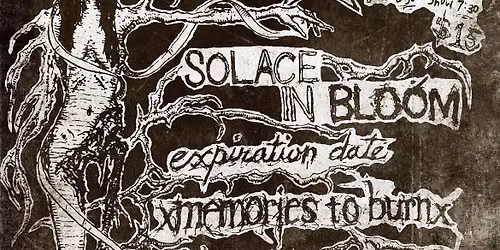 7:30
$15
SOLACE
IN BLOOM
expiration date
xmemories to burnx